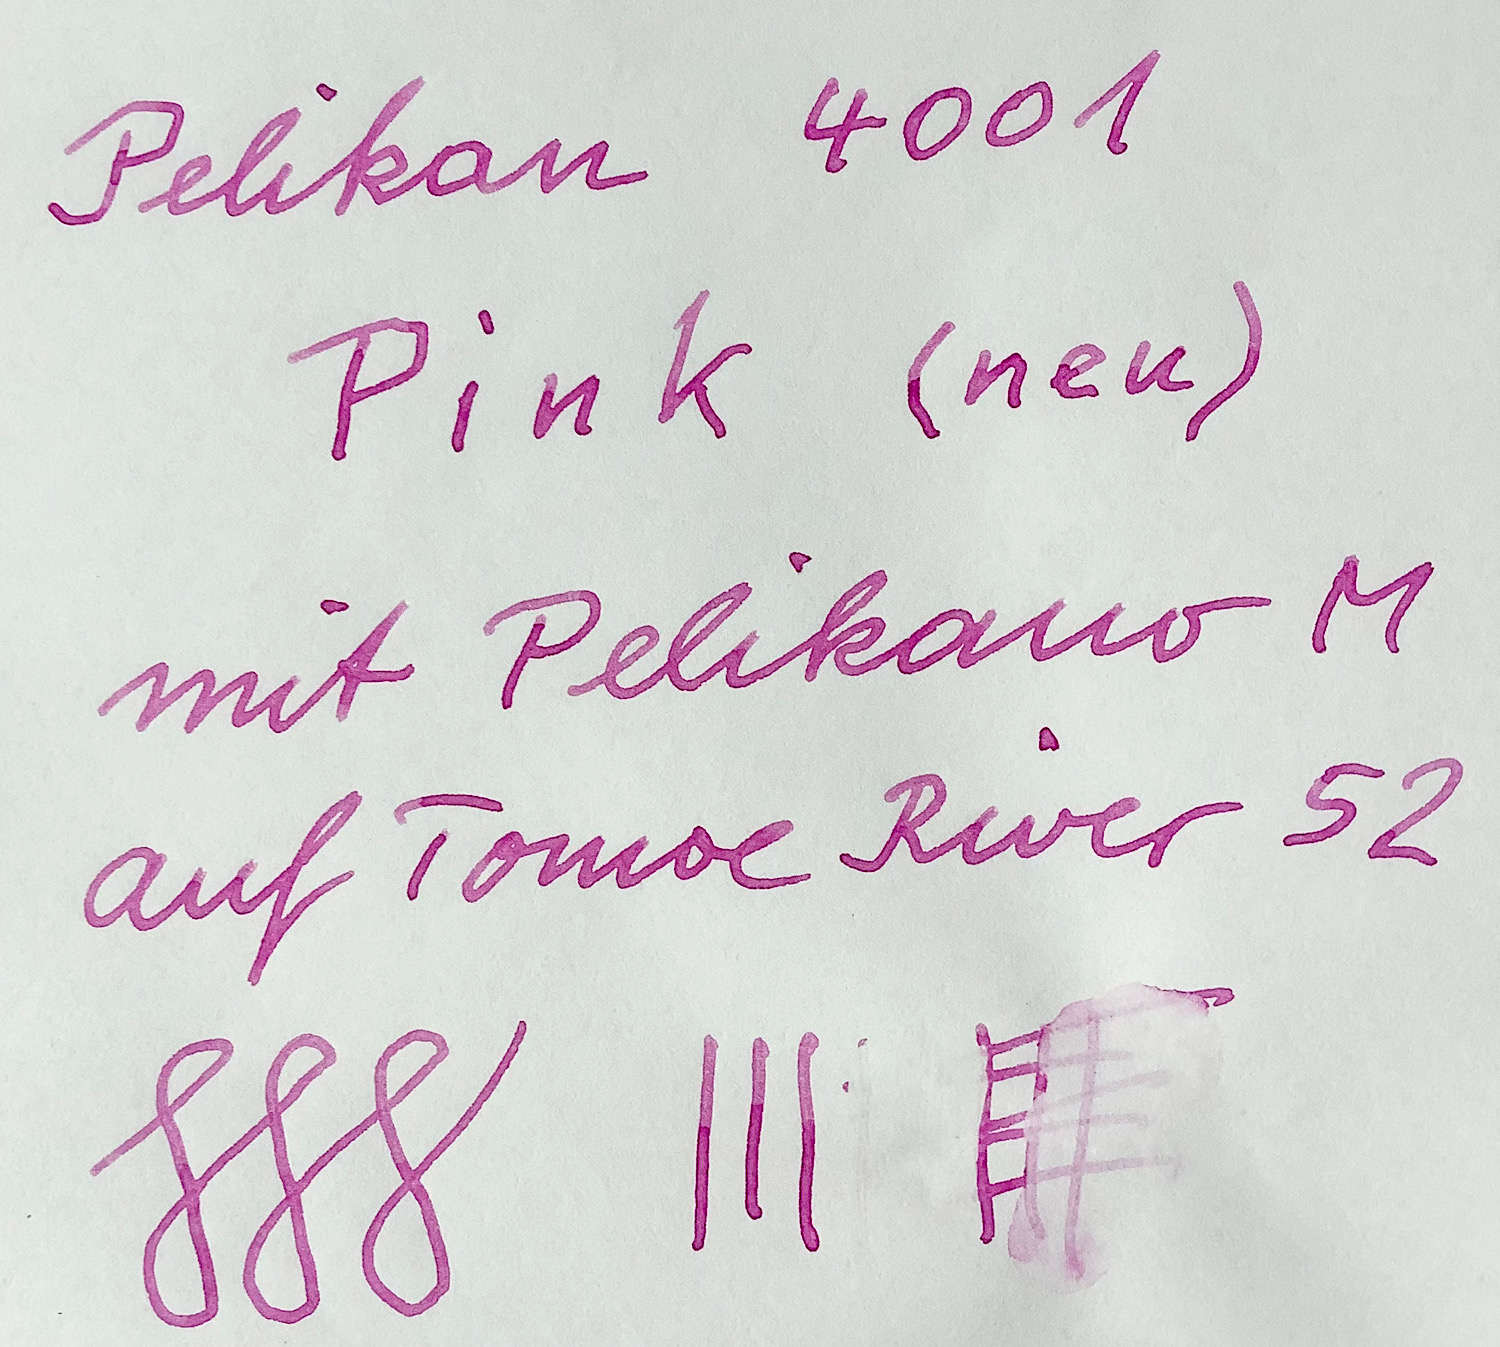 Pelikan 4001
Pink (neu)
mit Pelikano M
auf Tomoe River 52